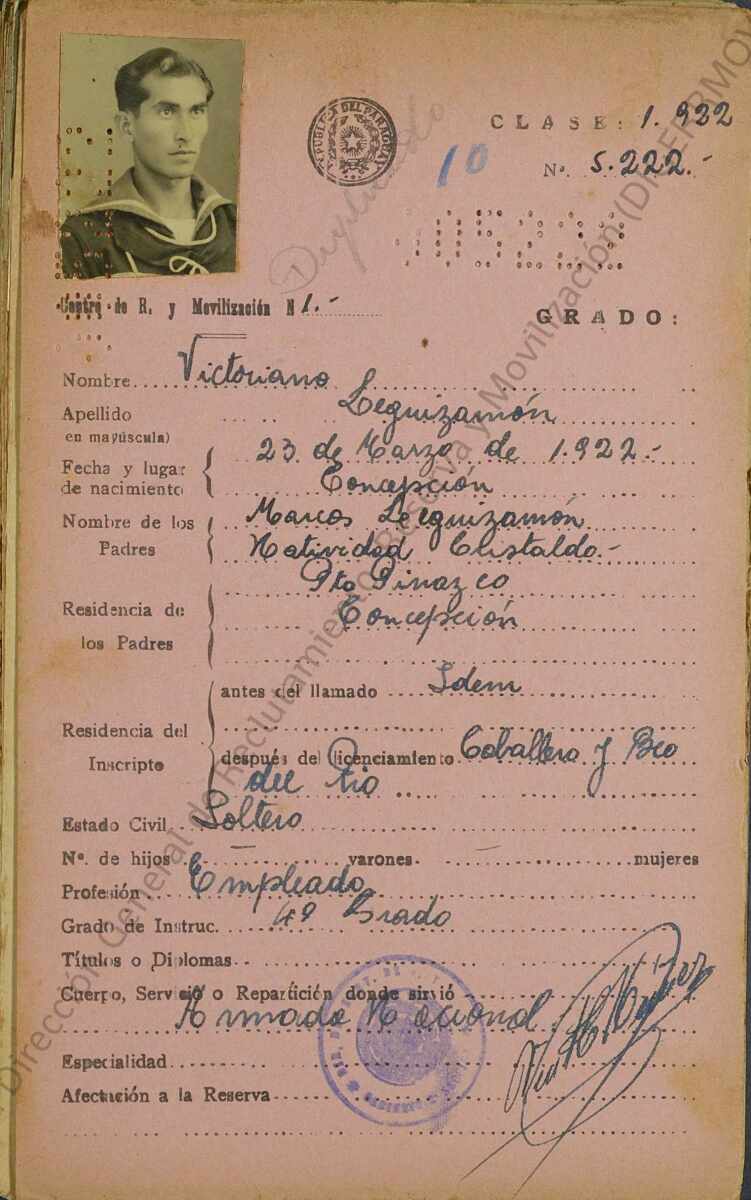 REPUBLICA DEL PARAGUAY
CLASE: 1.922
10
Nº. 5.222.-
Duplicado
05222
Centro de R. y Movilización N 1.-
GRADO:
Nombre Victoriano
Apellido Leguizamón
en mayúscula)
23 de Marzo de 1.922.-
Fecha y lugar
de nacimiento Concepción
Nombre de los Marcos Leguizamón
Padres Natividad Cristaldo.-
Pto Pinazco
Residencia de Concepción
los Padres
antes del llamado Idem
Residencia del
Inscripto después del licenciamiento Caballero y Bco
del Rio
Estado Civil Soltero
Nº. de hijos - varones. - mujeres
Profesión Empleado
Grado de Instruc. 4º Grado
Títulos o Diplomas
Cuerpo, Servicio o Repartición donde sirvió
Armada Nacional
Especialidad
Afectación a la Reserva
Dirección General de Reclutamiento Reserva y Movilización